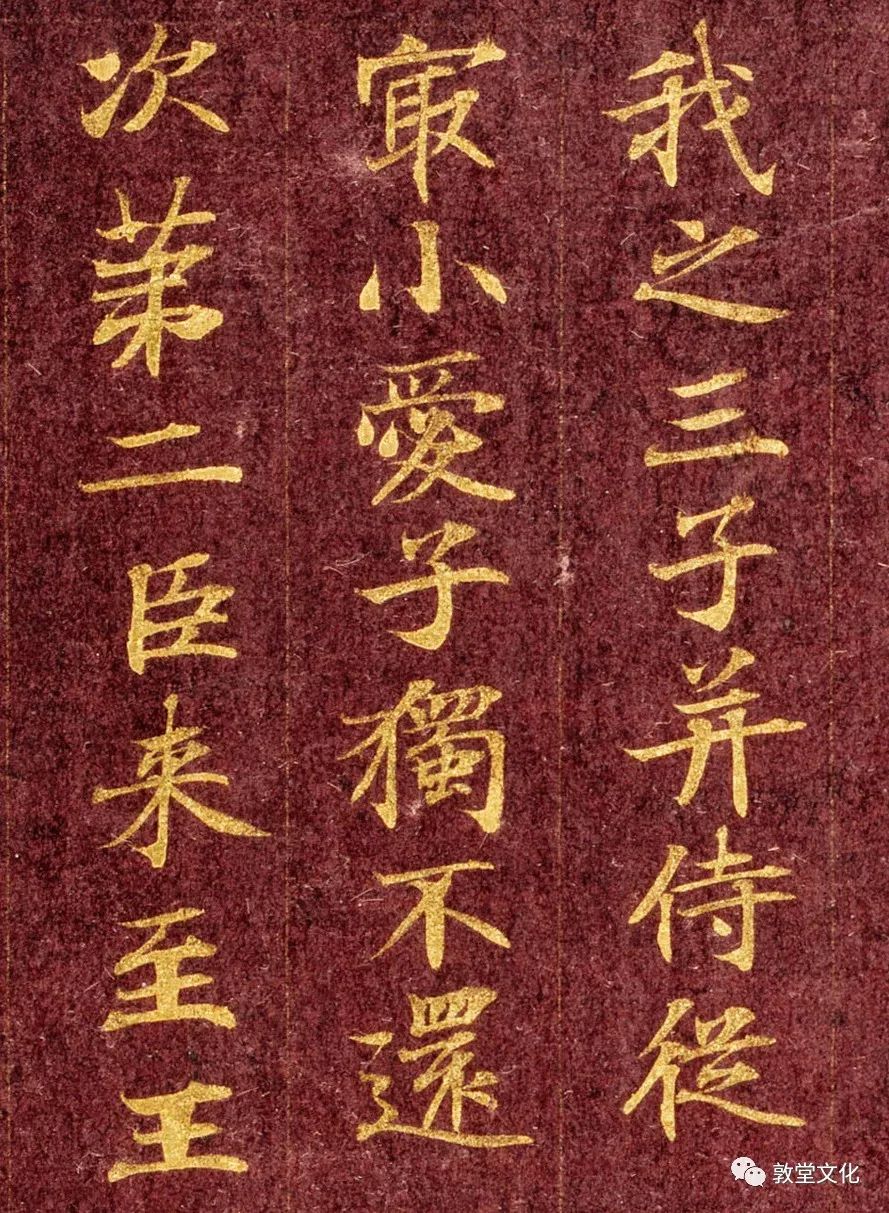 我之三子并侍従
㝡小愛子獨不還
次苐二臣来至王
敦堂文化